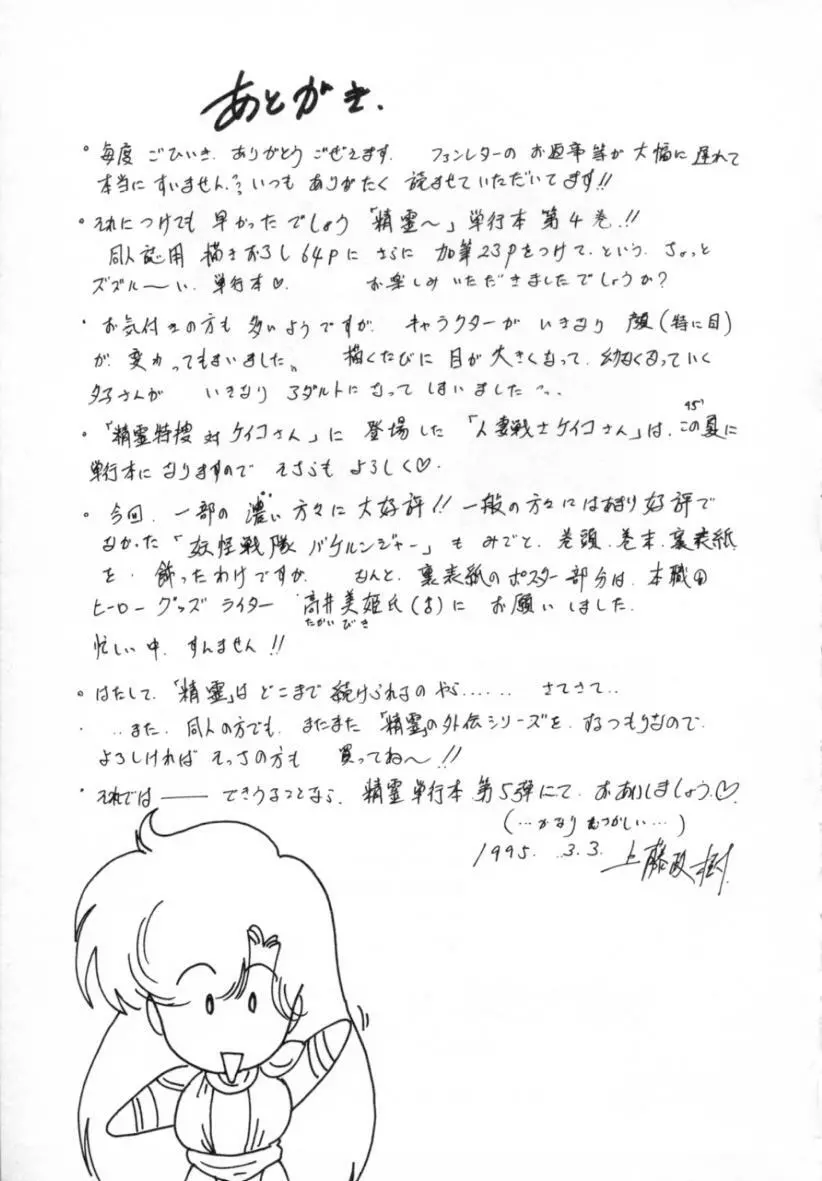 あとがき.
・毎度 ごひいき、ありがとう ございます. ファンレターの お返事等が 大幅に 遅れて
本当に すいません。いつも ありがたく 読ませていただいてます!!
・それにつけても 早かった でしょう「精霊〜」単行本 第4巻.!!
同人誌用 描きおろし64Pに さらに 加筆23Pをつけて、という、ちょっと
ズズルーい、単行本♡. お楽しみ いただきましたでしょうか?
・お気付きの方も 多いようですが、キャラクターが いきなり 顔(特に目)
が、変わってしまいました。 描くたびに 目が 大きくなって、幼くなっていく
タ子さんが いきなり アダルトに なって しまいました…
・「精霊特捜 対 ケイコさん」に 登場した「人妻戦士ケイコさん」は、この夏に
95'
単行本に なりますので そちらも よろしく♡.
・今回、一部の 濃い 方々に 大好評!! 一般の方々には あまり 好評で
なかった「妖怪戦隊 バケルンジャー」も みごと、巻頭、巻末、裏表紙
を 飾ったわけですが、 なんと、裏表紙の ポスター部分は、本職の
ヒーロー グッズ ライター 高井美姫氏(お)に お願いしました.
たかい びき
忙しい中、すんません!!
・はたして、「精霊」は どこまで 続けられるのやら…… さてさて‥
・‥また、同人の方でも、またまた「精霊」の外伝シリーズを、するつもりなので、
よろしければ そっちの方も 買ってね〜!!
・それでは―― できうることなら、精霊単行本 第5弾にて、おあいしましょう♡.
(…かなり むつかしい…)
1995. 3.3. 上藤政樹